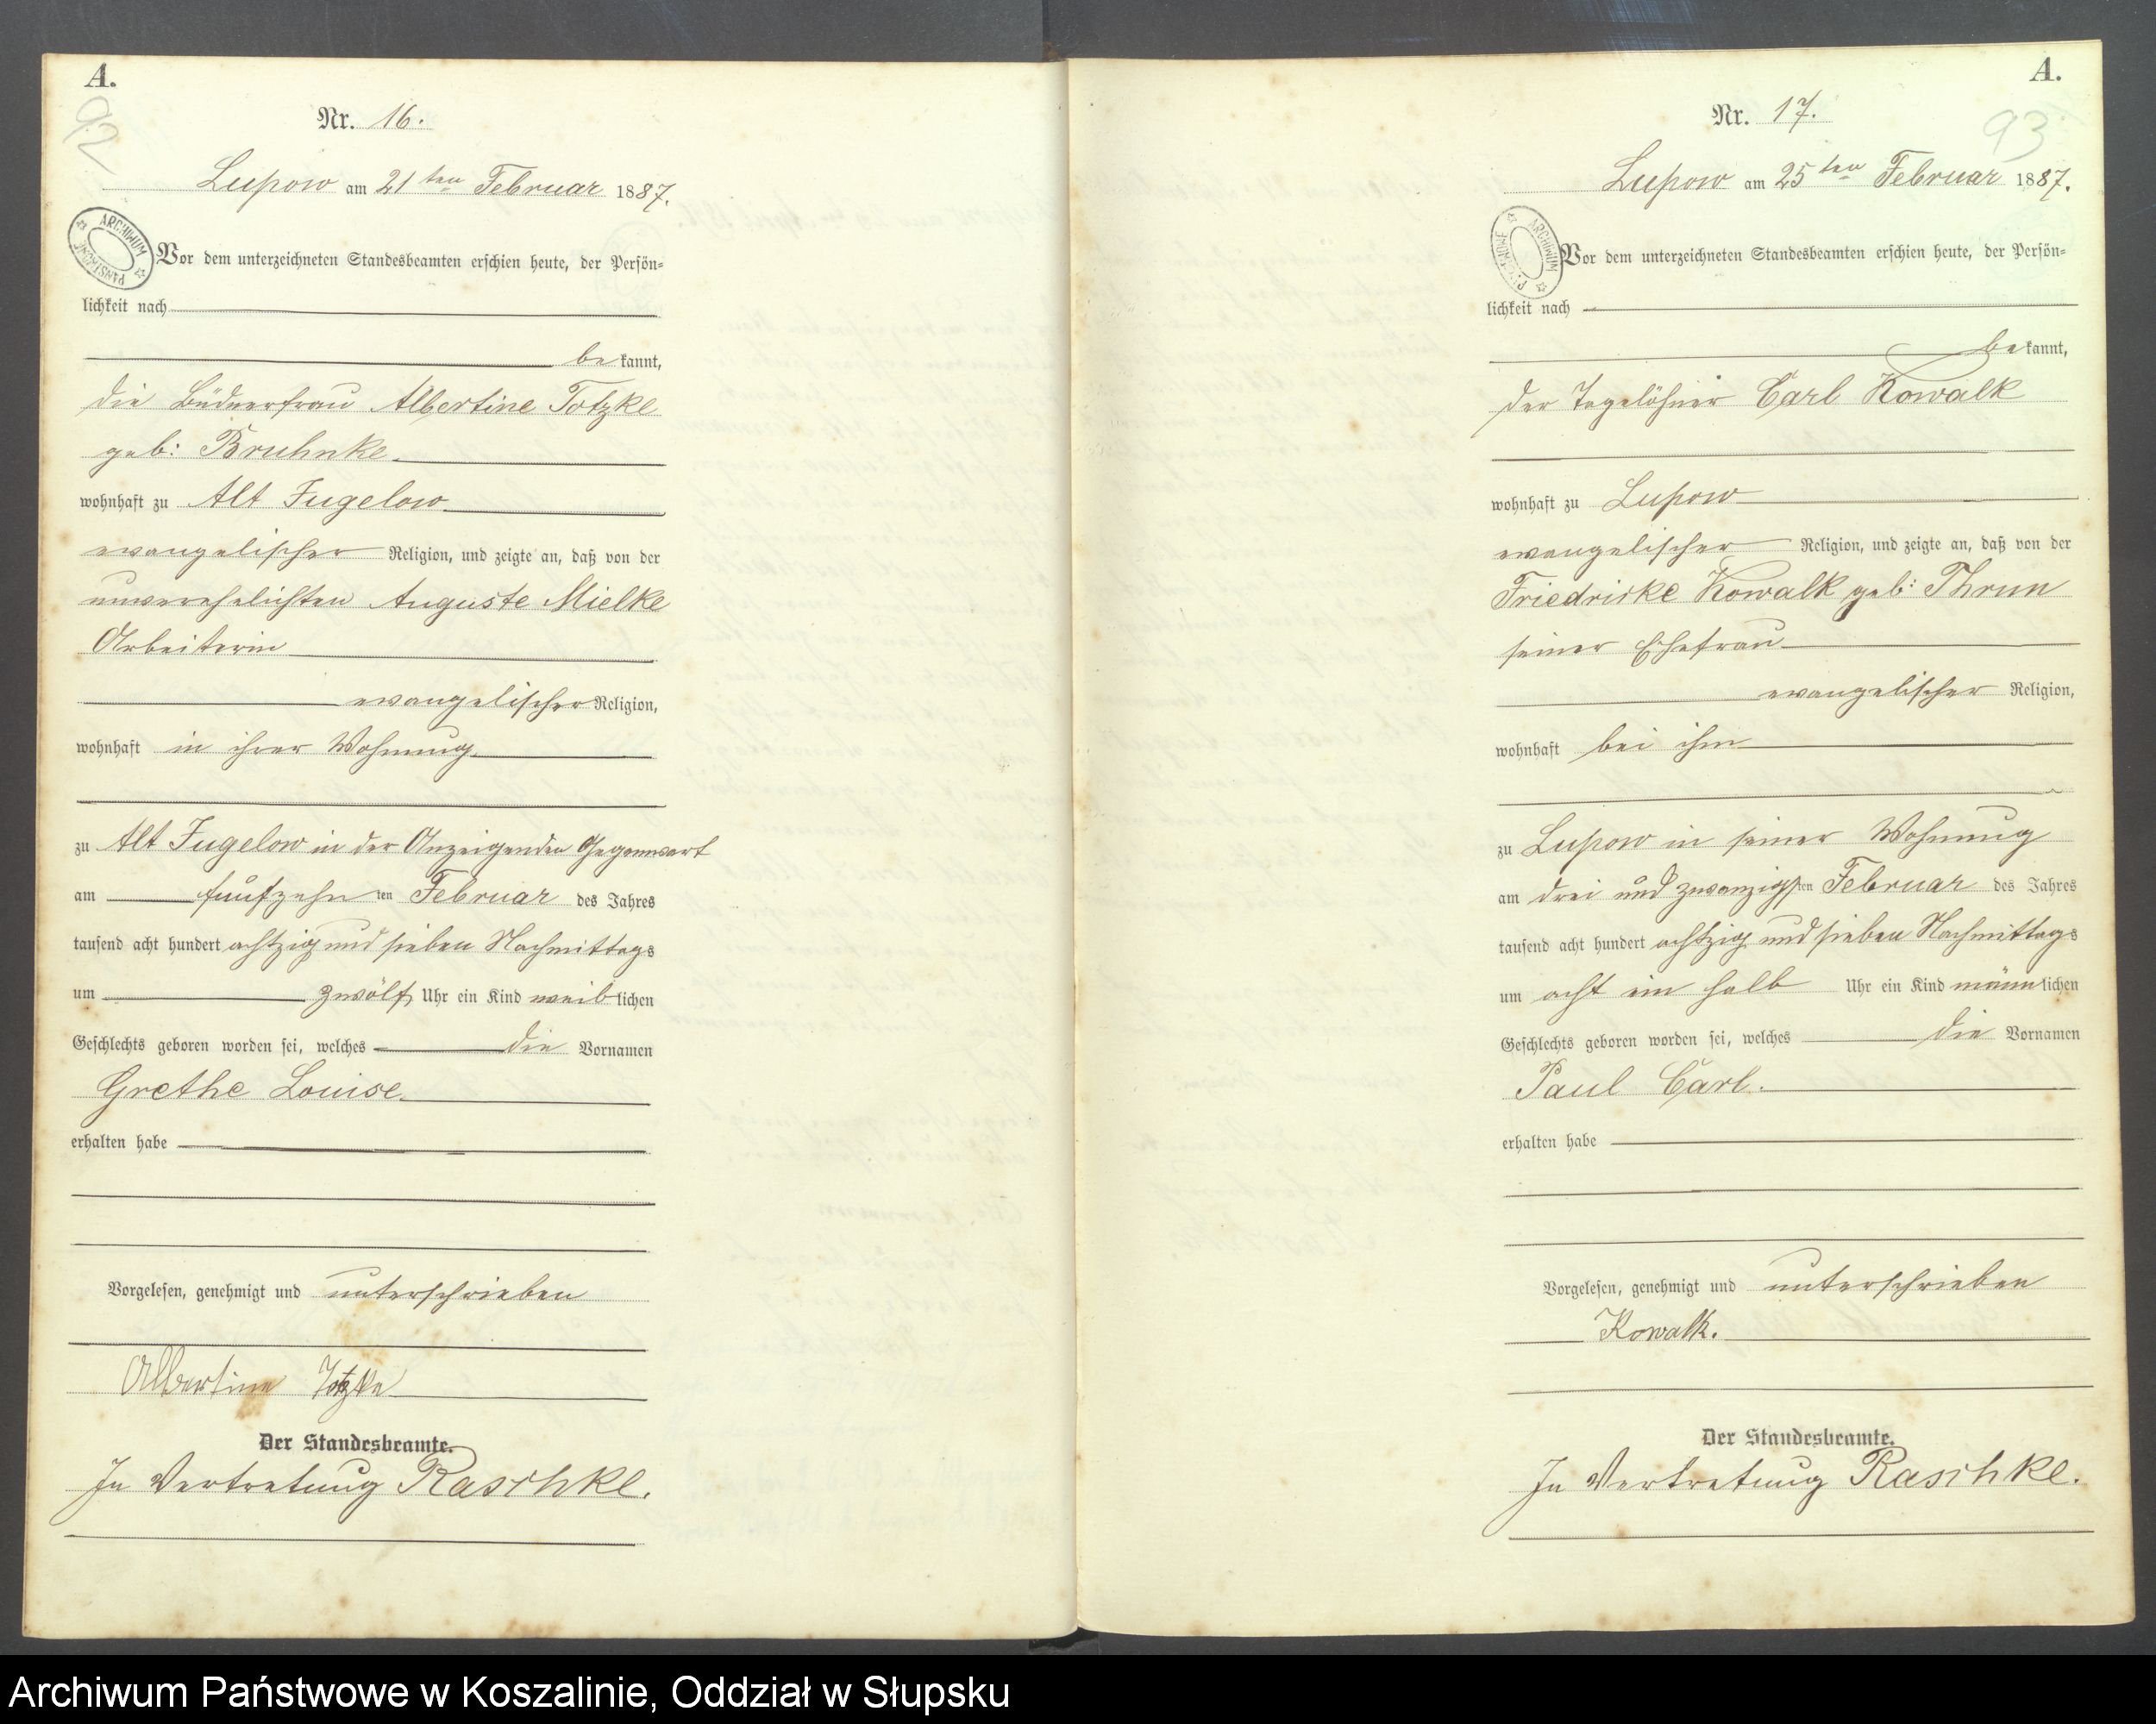 A.
92
Nr. 16.
Lupow am 21ten Februar 1887.
ARCHIWUM PAŃSTWOWE
Vor dem unterzeichneten Standesbeamten erschien heute, der Persön-
lichkeit nach
bekannt,
die Büdnerfrau Albertine Totzke
geb: Bruhnke
wohnhaft zu Alt Jugelow
evangelischer Religion, und zeigte an, daß von der
unverehelichten Auguste Mielke
Arbeiterin
evangelischer Religion,
wohnhaft in ihrer Wohnung
zu Alt Jugelow in der Anzeigenden Gegenwart
am fünfzehnten Februar des Jahres
tausend acht hundert achtzig und sieben Nachmittags
um zwölf Uhr ein Kind weiblichen
Geschlechts geboren worden sei, welches die Vornamen
Grethe Louise
erhalten habe
Vorgelesen, genehmigt und unterschrieben
Albertine Totzke
Der Standesbeamte.
In Vertretung Raschke.
A.
93
Nr. 17.
Lupow am 25ten Februar 1887.
ARCHIWUM PAŃSTWOWE
Vor dem unterzeichneten Standesbeamten erschien heute, der Persön-
lichkeit nach
bekannt,
der Tagelöhner Carl Kowalk
wohnhaft zu Lupow
evangelischer Religion, und zeigte an, daß von der
Friedricke Kowalk geb: Thrun
seiner Ehefrau
evangelischer Religion,
wohnhaft bei ihm
zu Lupow in seiner Wohnung
am drei und zwanzigsten Februar des Jahres
tausend acht hundert achtzig und sieben Nachmittags
um acht ein halb Uhr ein Kind männlichen
Geschlechts geboren worden sei, welches die Vornamen
Paul Carl.
erhalten habe
Vorgelesen, genehmigt und unterschrieben
Kowalk.
Der Standesbeamte.
In Vertretung Raschke.
Archiwum Państwowe w Koszalinie, Oddział w Słupsku